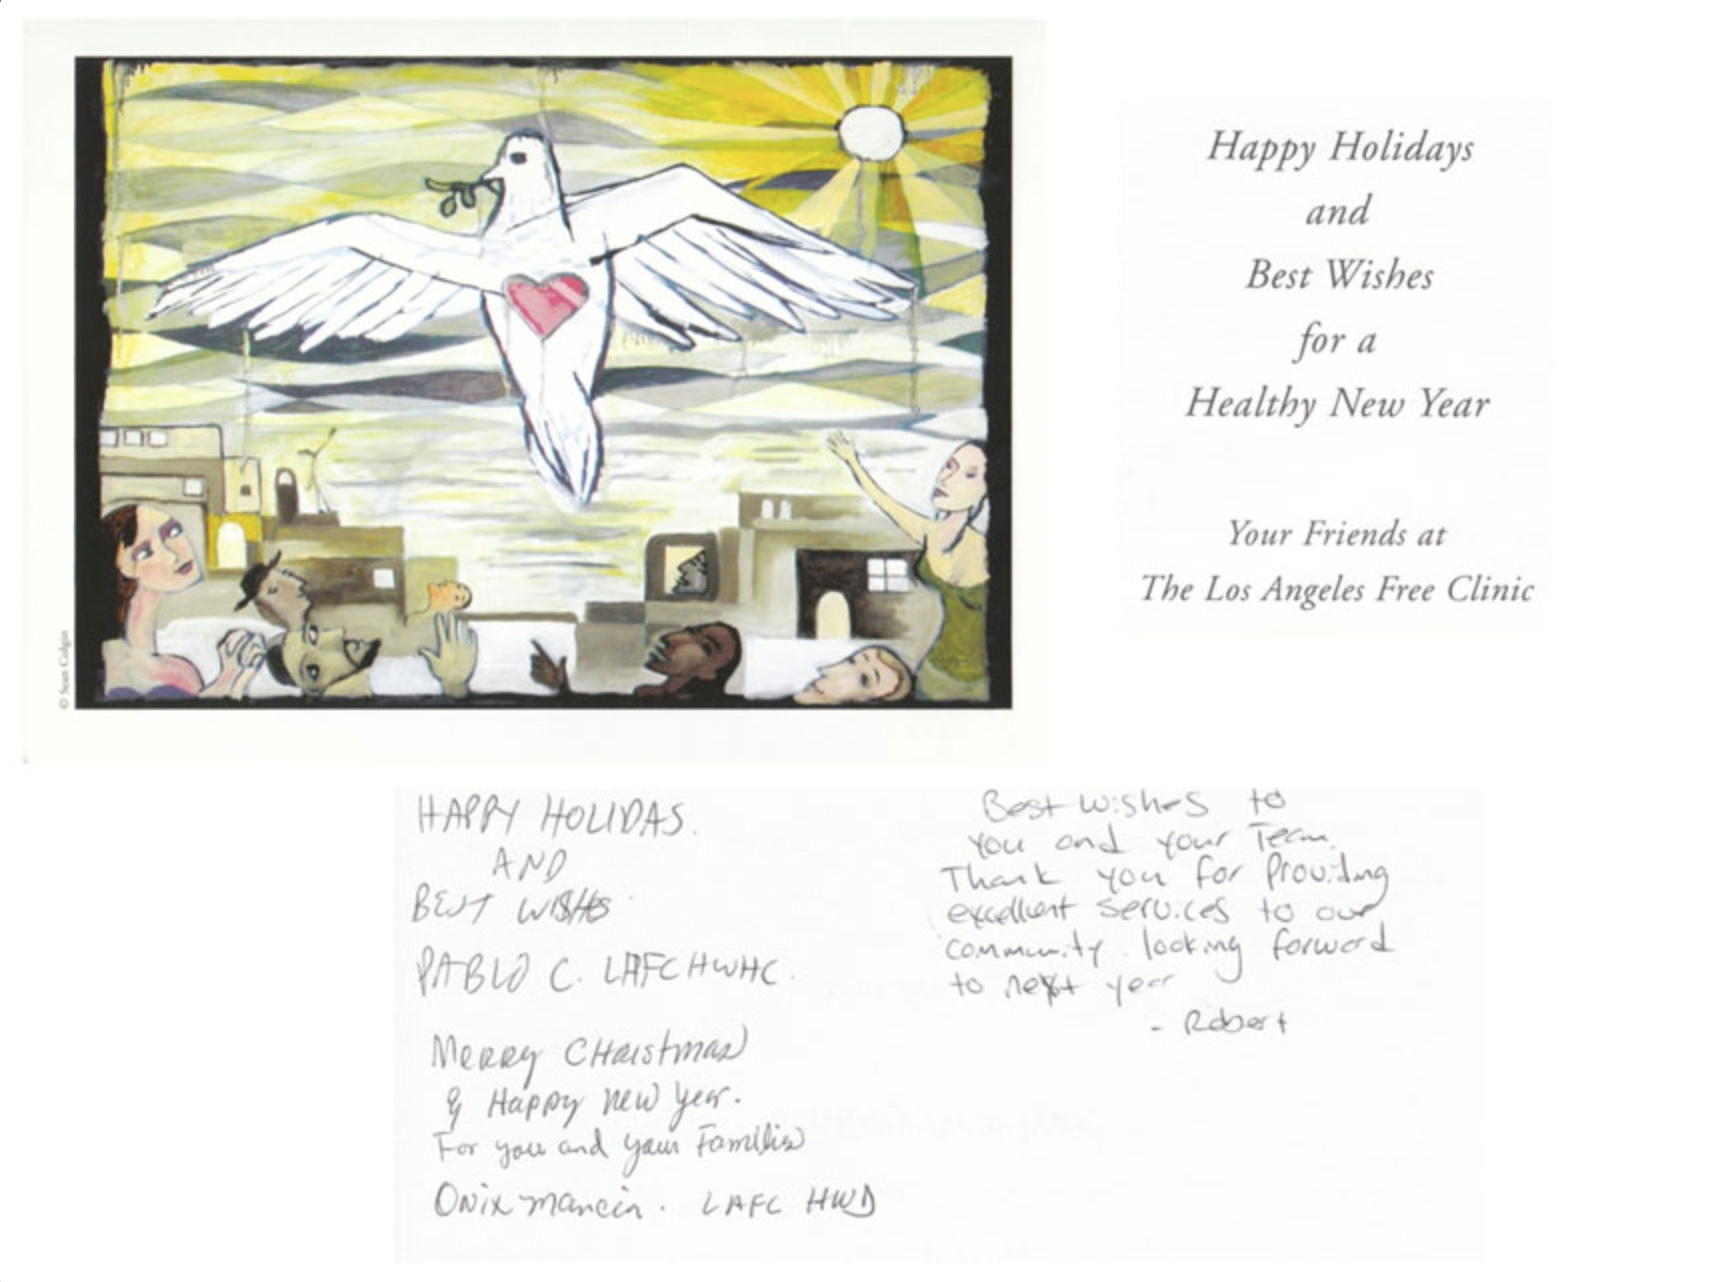 © Sean Colgin
Happy Holidays
and
Best Wishes
for a
Healthy New Year
Your Friends at
The Los Angeles Free Clinic
HAPPY HOLIDAS.
AND
BEST WISHES
PABLO C. LAFCHWHC.
Merry CHristmas
& Happy New Year.
For you and your Families
Onix Mancia. LAFC HWD
Best wishes to
you and your Team.
Thank you for Providing
excellent services to our
community. looking forward
to next year
- Robert